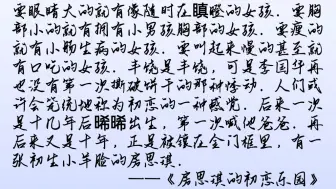 要眼睛大的就有像随时在瞋瞪的女孩。要胸
部小的就有拥有小男孩胸部的女孩。要瘦的
就有小肠生病的女孩。要叫起来慢的甚至就
有口吃的女孩。丰饶是丰饶，可是李国华再
也没有第一次撕破饼干的那种悸动。人们或
许会笼统地称为初恋的一种感觉。后来一次
是十几年后晞晞出生，第一次喊他爸爸。再
后来又是十年，正是被镶在金门框里，有一
张初生小羊脸的房思琪。
——《房思琪的初恋乐园》